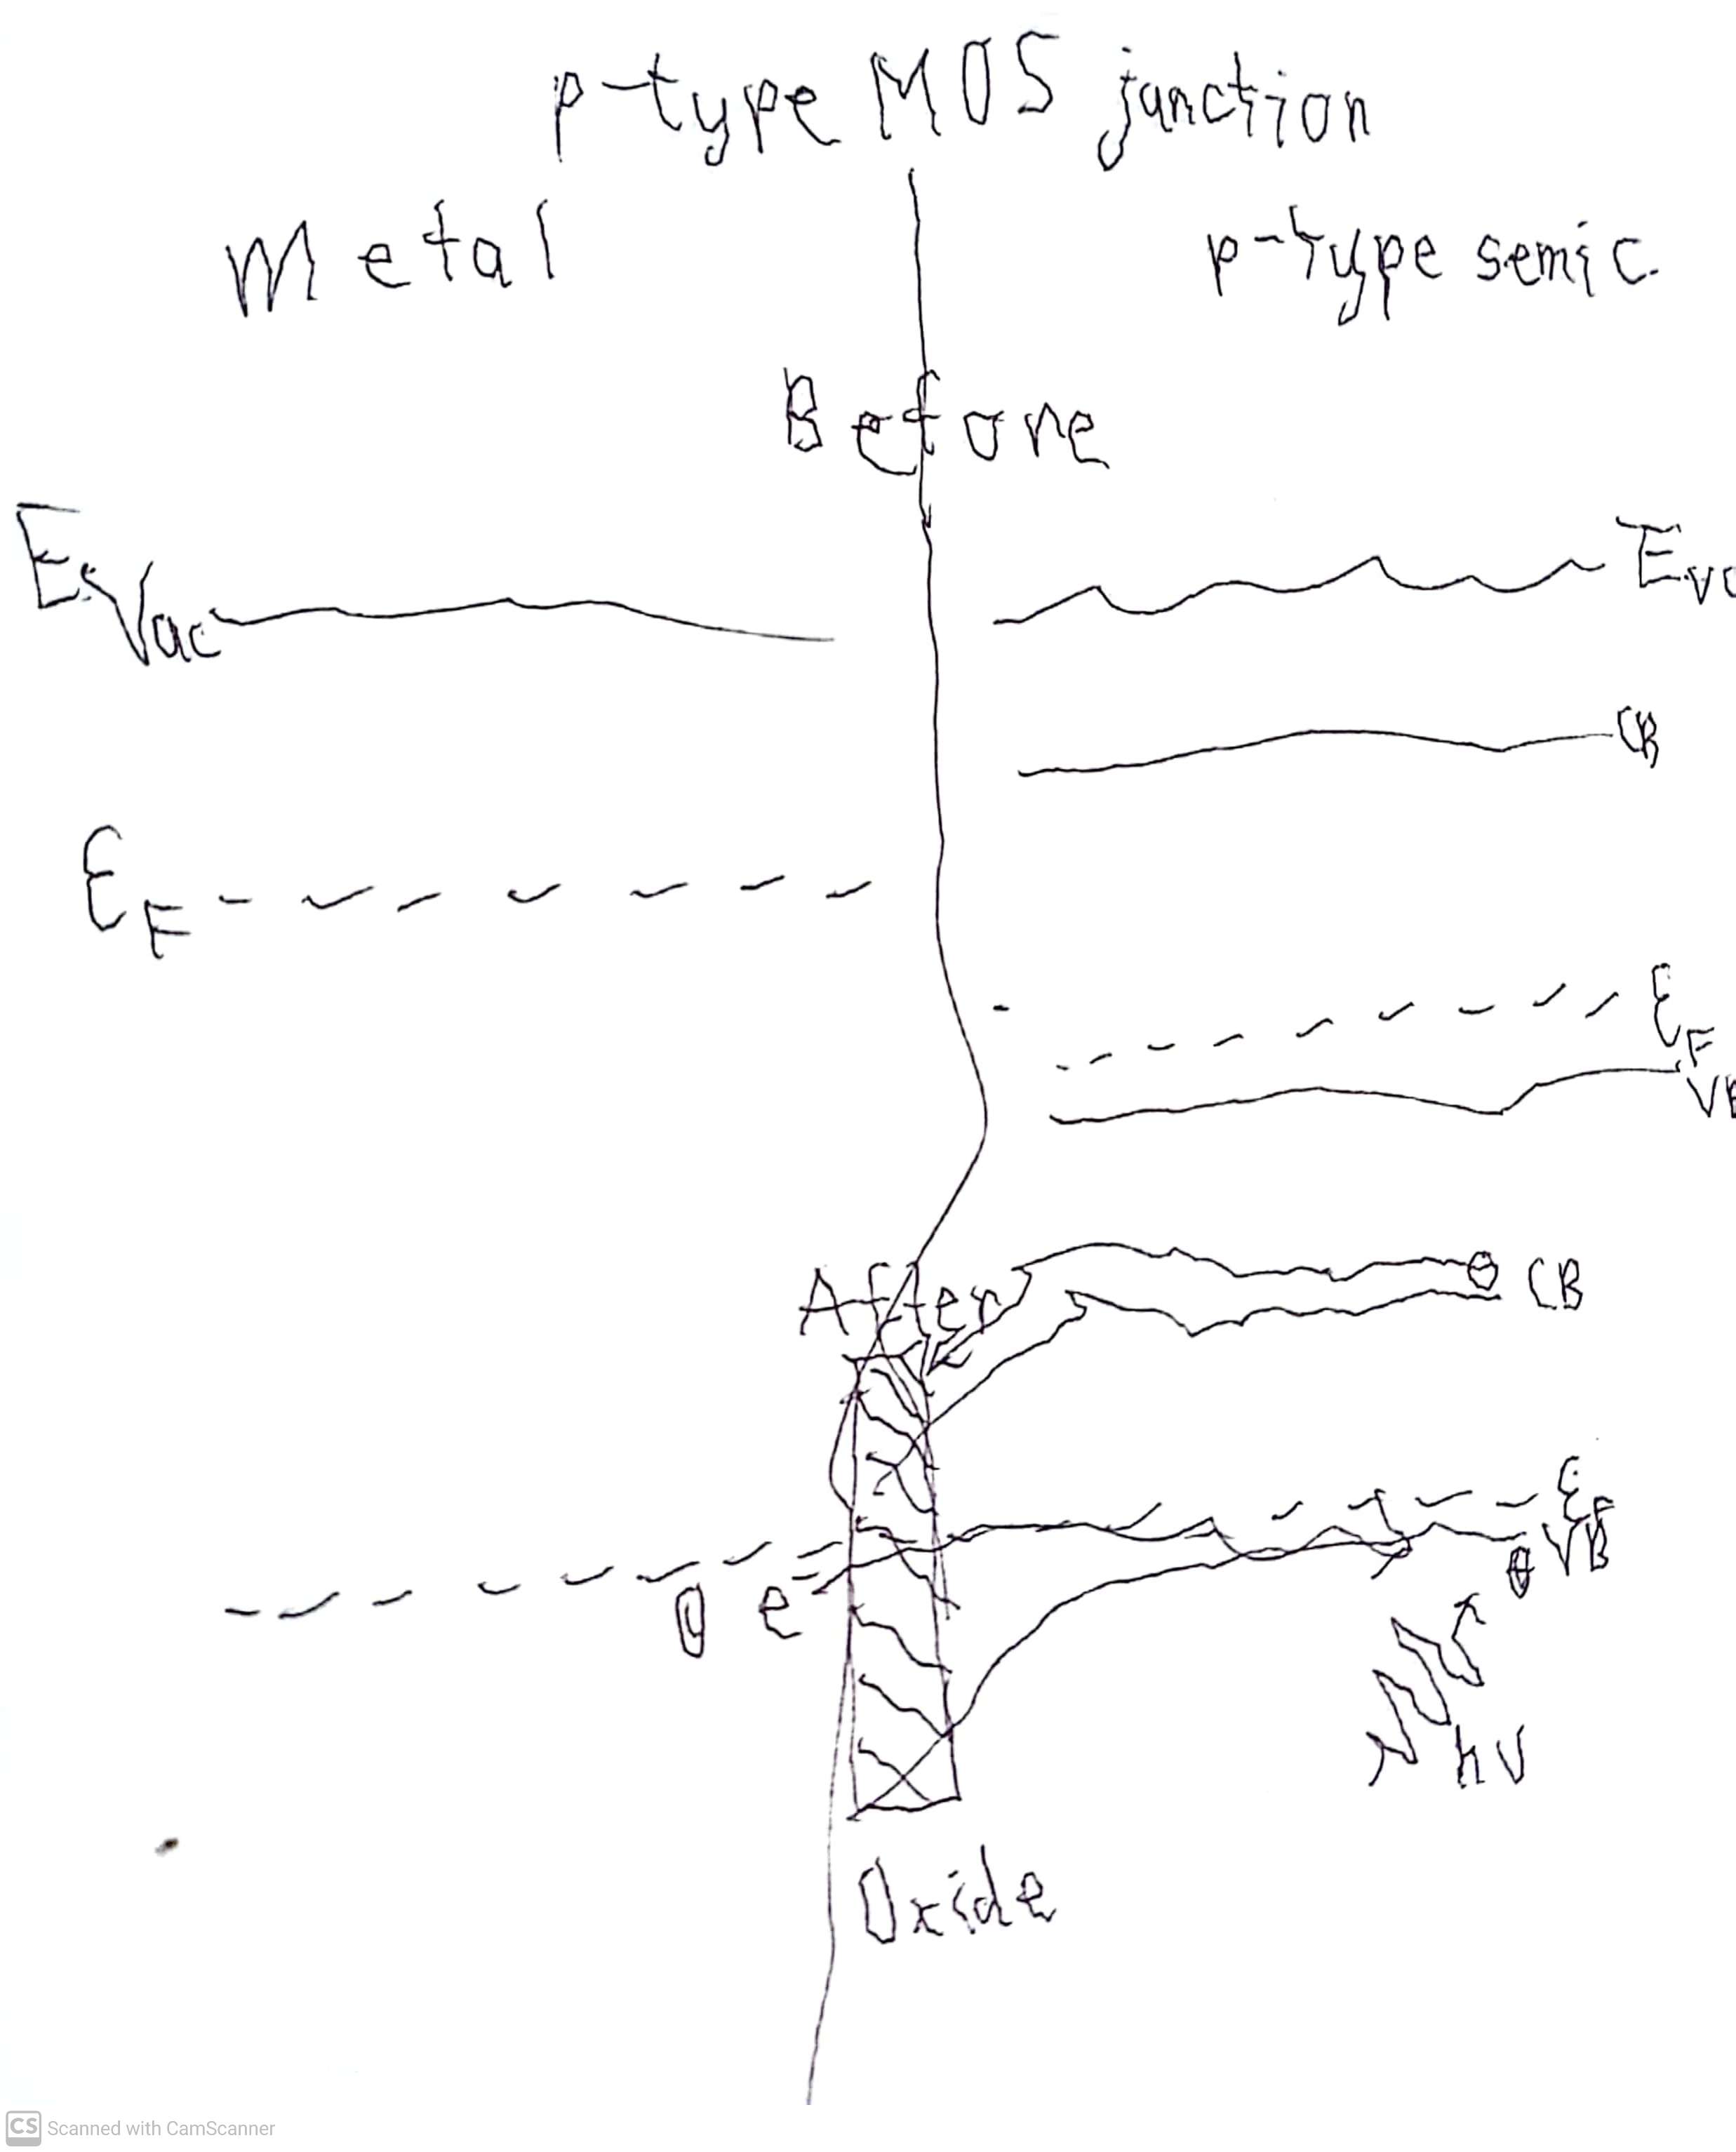 p-type MOS junction
Metal
p-type semic.
Before
E Vac
E
CB
E_F
E_F
After
CB
E_F
VB
e
hν
Oxide
CS Scanned with CamScanner